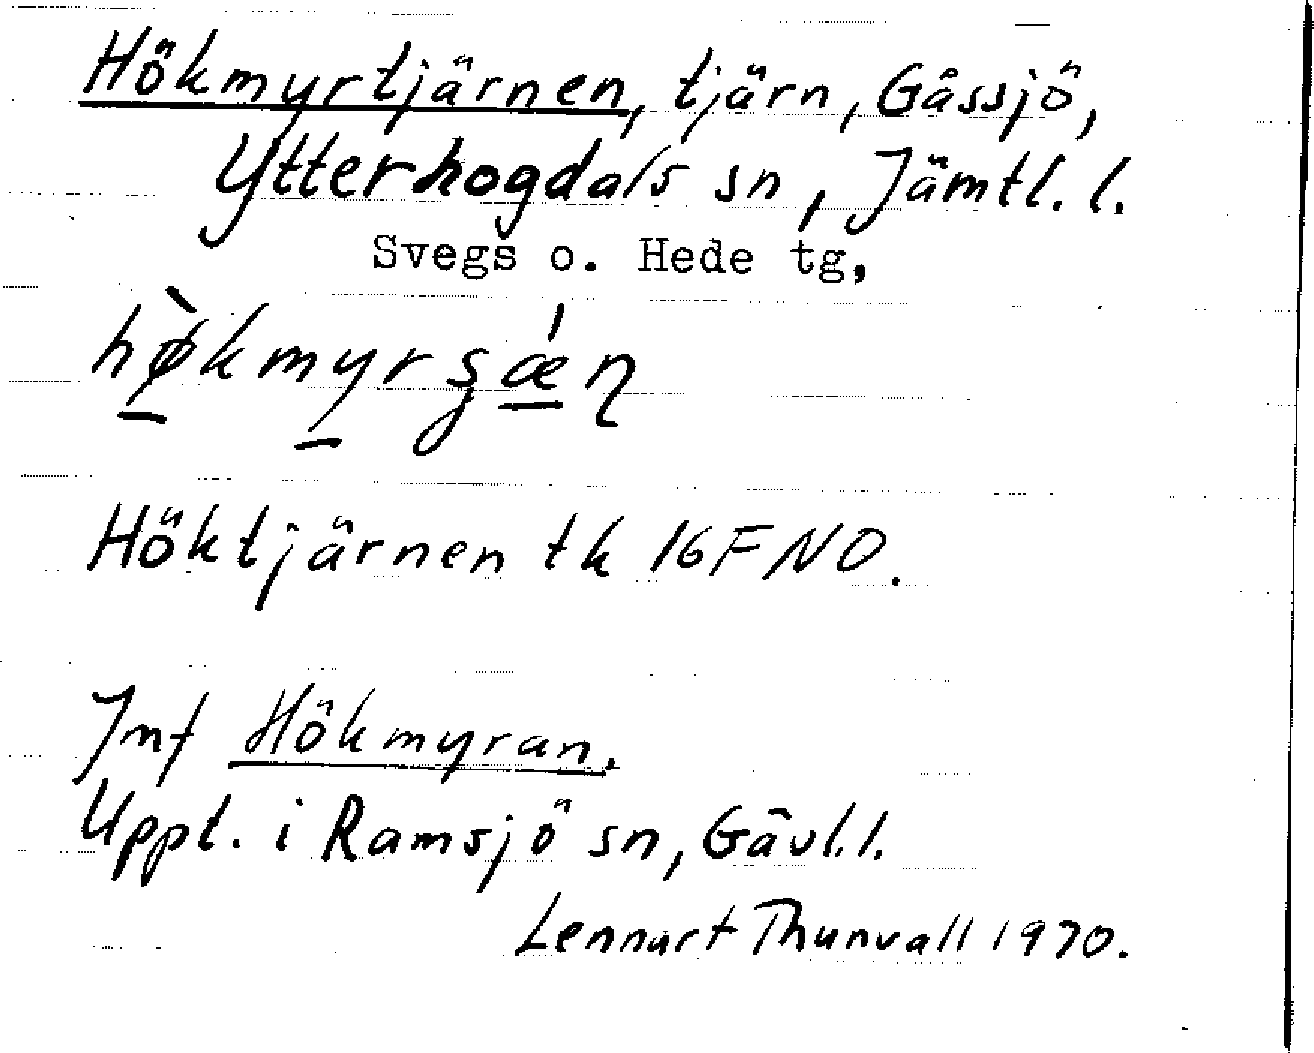 Hökmyrtjärnen, tjärn, Gåssjö,
Ytterhogdals sn, Jämtl. l.
Svegs o. Hede tg,
hø̀kmyrʂǽɳ
Höktjärnen tk 16F NO.
Jmf Hökmyran.
Uppt. i Ramsjö sn, Gävl. l.
Lennart Thunvall 1970.